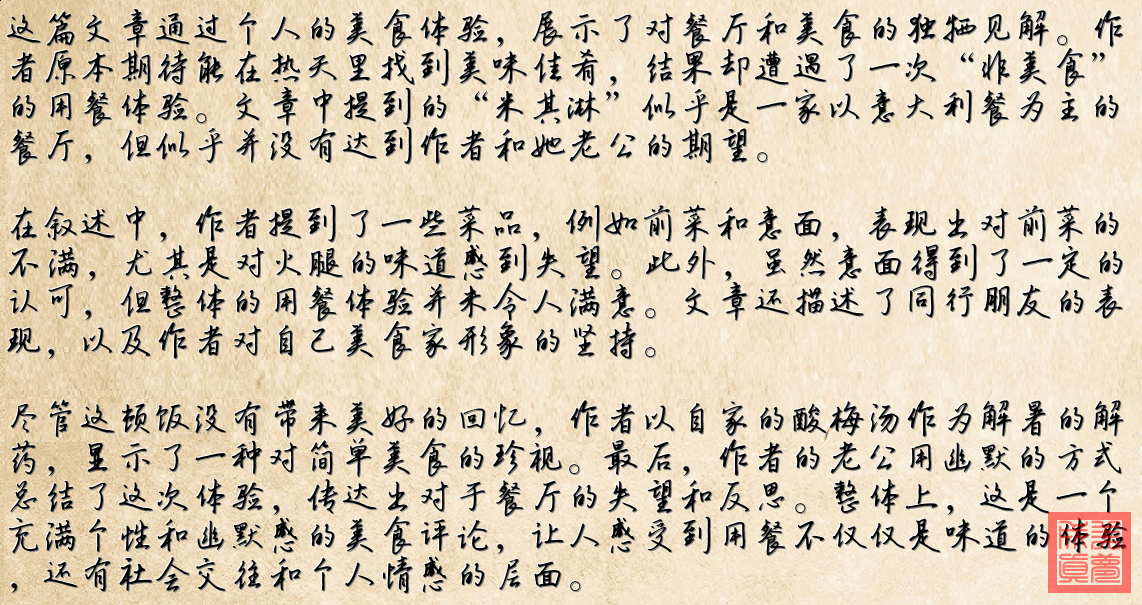 这篇文章通过个人的美食体验，展示了对餐厅和美食的独牺见解。作
者原本期待能在热天里找到美味佳肴，结果却遭遇了一次“非美食”
的用餐体验。文章中提到的“米其淋”似乎是一家以意大利餐为主的
餐厅，但似乎并没有达到作者和她老公的期望。
在叙述中，作者提到了一些菜品，例如前菜和意面，表现出对前菜的
不满，尤其是对火腿的味道感到失望。此外，虽然意面得到了一定的
认可，但整体的用餐体验并未令人满意。文章还描述了同行朋友的表
现，以及作者对自己美食家形象的坚持。
尽管这顿饭没有带来美好的回忆，作者以自家的酸梅汤作为解暑的解
药，显示了一种对简单美食的珍视。最后，作者的老公用幽默的方式
总结了这次体验，传达出对于餐厅的失望和反思。整体上，这是一个
充满个性和幽默感的美食评论，让人感受到用餐不仅仅是味道的体验
，还有社会交往和个人情感的层面。